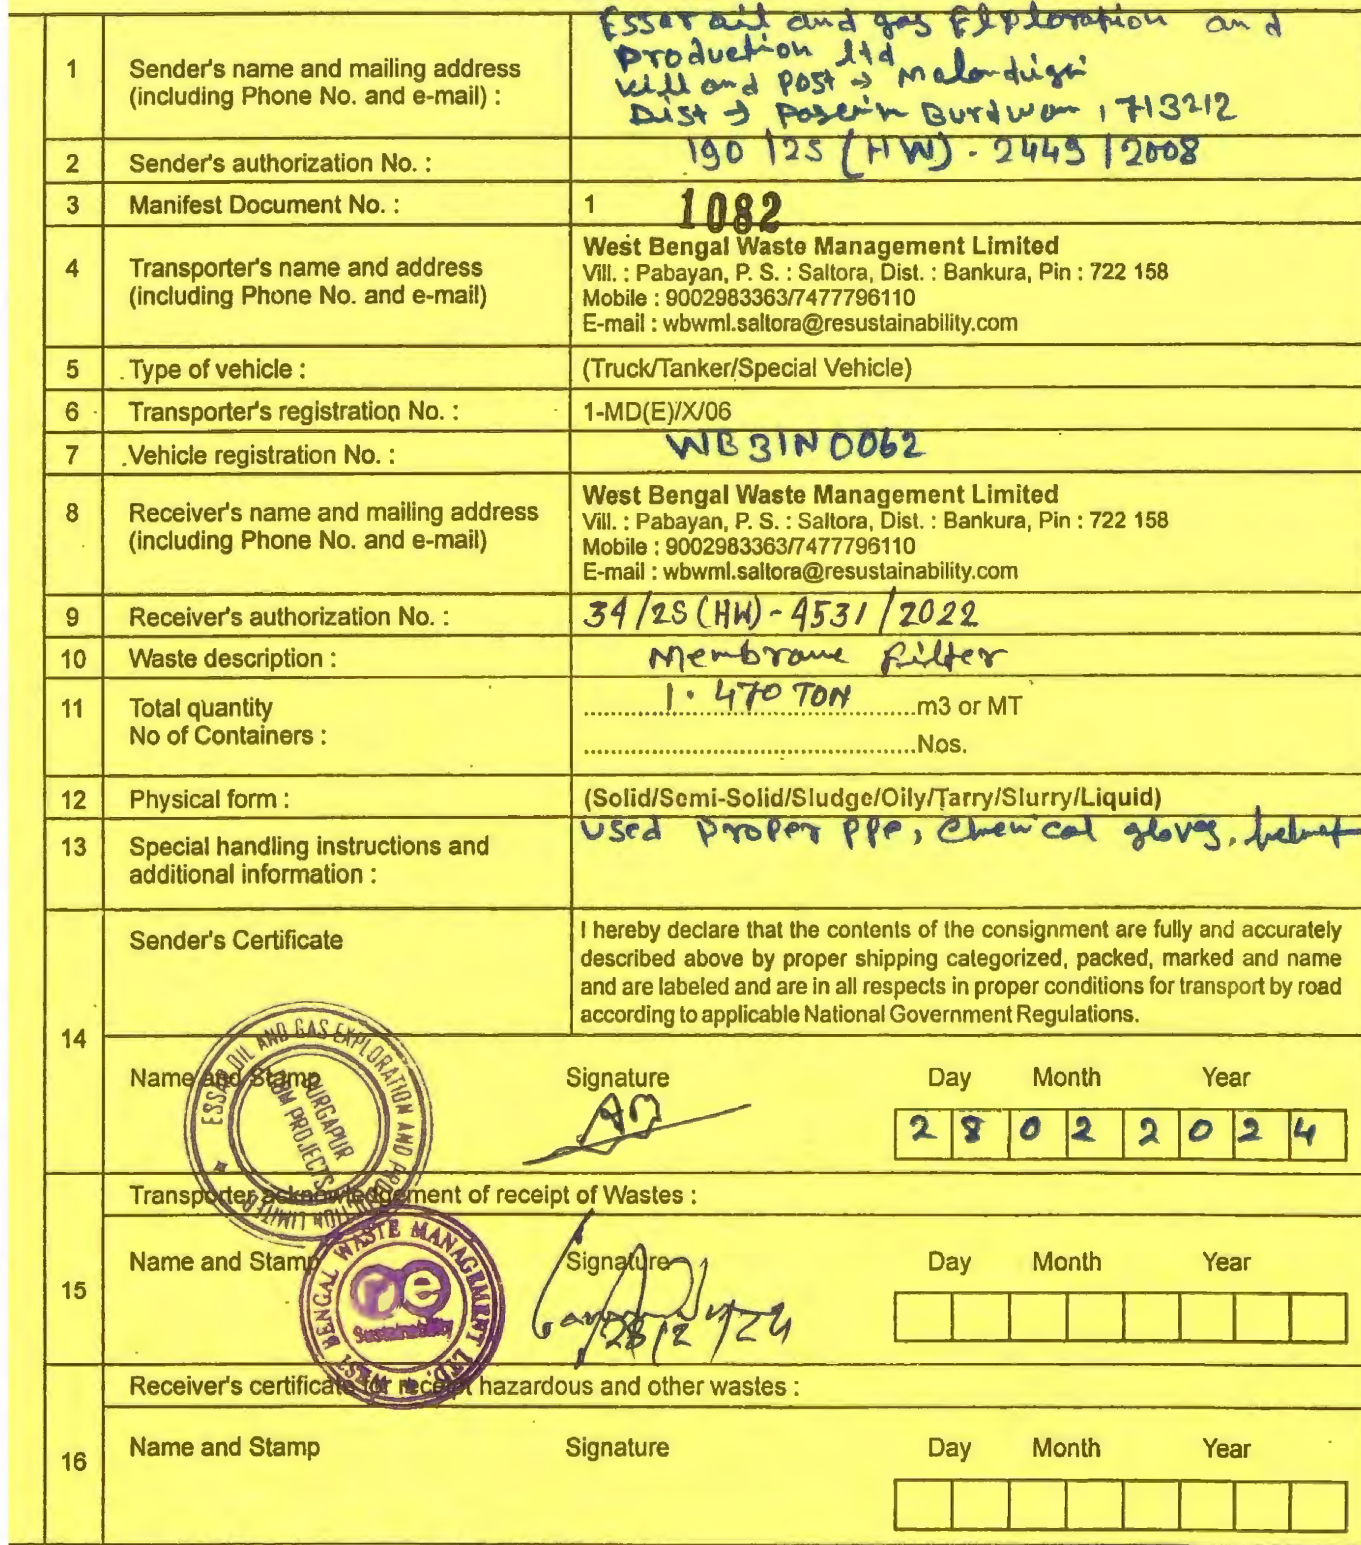 1
Sender's name and mailing address
(including Phone No. and e-mail) :
Essar oil and gas Exploration and
Production ltd
Vill and Post → Malandighi
Dist → Burdwan, 713212
2 Sender's authorization No. : 190/2S(HW)-2449/2008
3 Manifest Document No. : 1 1082
4
Transporter's name and address
(including Phone No. and e-mail)
West Bengal Waste Management Limited
Vill. : Pabayan, P. S. : Saltora, Dist. : Bankura, Pin : 722 158
Mobile : 9002983363/7477796110
E-mail : wbwml.saltora@resustainability.com
5 Type of vehicle : (Truck/Tanker/Special Vehicle)
6 Transporter's registration No. : 1-MD(E)/X/06
7 Vehicle registration No. : WB31N0062
8
Receiver's name and mailing address
(including Phone No. and e-mail)
West Bengal Waste Management Limited
Vill. : Pabayan, P. S. : Saltora, Dist. : Bankura, Pin : 722 158
Mobile : 9002983363/7477796110
E-mail : wbwml.saltora@resustainability.com
9 Receiver's authorization No. : 34/2S(HW)-4531/2022
10 Waste description : Membrane filter
11 Total quantity 1.470 TON m3 or MT
No of Containers : Nos.
12 Physical form : (Solid/Semi-Solid/Sludge/Oily/Tarry/Slurry/Liquid)
13
Special handling instructions and
additional information :
Used Proper PPe, Chemical gloves, helmet
14
Sender's Certificate
I hereby declare that the contents of the consignment are fully and accurately
described above by proper shipping categorized, packed, marked and name
and are labeled and are in all respects in proper conditions for transport by road
according to applicable National Government Regulations.
Name and Stamp Signature Day Month Year
28 02 2024
ESSAR OIL AND GAS EXPLORATION AND PRODUCTION LIMITED
DURGAPUR
CBM PROJECTS
Transporter acknowledgement of receipt of Wastes :
15
Name and Stamp Signature Day Month Year
28/2/24
WEST BENGAL WASTE MANAGEMENT LTD.
re
Sustainability
Receiver's certificate for receipt hazardous and other wastes :
16
Name and Stamp Signature Day Month Year